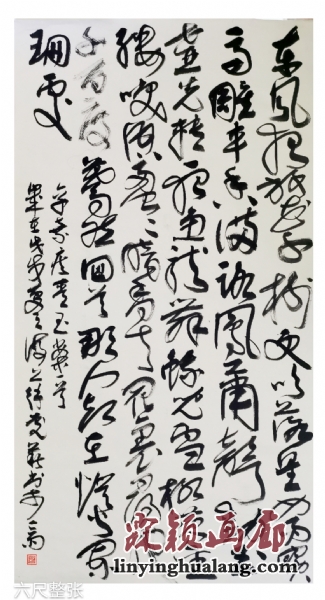 东风夜放花千树更吹落星如雨宝
马雕车香满路凤箫声动玉
壶光转一夜鱼龙舞蛾儿雪柳黄金
缕笑语盈盈暗香去众里寻他
千百度蓦然回首那人却在灯火阑
珊处
辛弃疾青玉案
颖画廊
linyinghualang.com
六尺整张